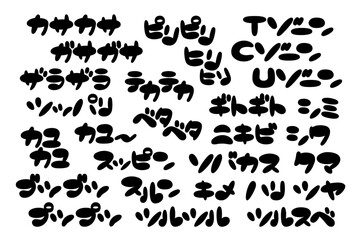 カサカサ
ガサガサ
ザラザラ
ツッパリ
カユ
カユ
カユ～
ブツブツ
ブツブツ
ピリピリ
ヒリヒリ
テカテカ
ベタベタ
スッピン
スルン
キメ
ツルツル
Tゾーン
Cゾーン
Uゾーン
ギトギト
シミ
ニキビ
シワ
ソバカス
タマ
ハリ
ツヤ
ツルスベ